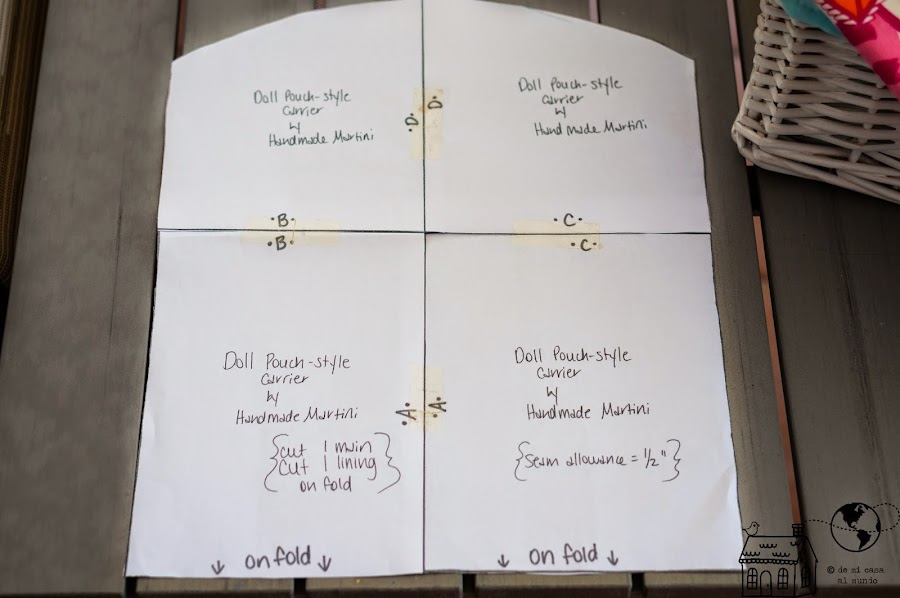 Doll Pouch-style
carrier
by
Handmade Martini
•D•
•B•
•D•
Doll Pouch-style
carrier
by
Handmade Martini
•C•
•B•
Doll Pouch-style
carrier
by
Handmade Martini
{cut 1 main}
{cut 1 lining}
on fold
•A•
↓ on fold ↓
•C•
Doll Pouch-style
carrier
by
Handmade Martini
{Seam allowance = 1/2"}
•A•
↓ on fold ↓
© de mi casa
al mundo